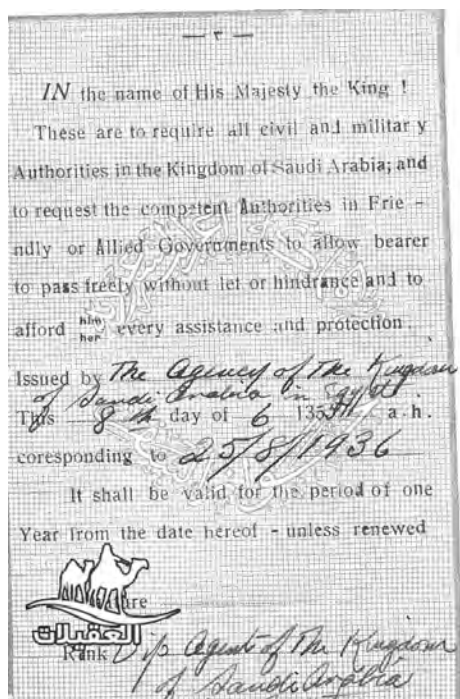 — ٣ —
IN the name of His Majesty the King !
These are to require all civil and militar y
Authorities in the Kingdom of Saudi Arabia; and
to request the competent Authorities in Frie -
ndly or Allied Governments to allow bearer
to pass freely without let or hindrance and to
afford him her every assistance and protection.
Issued by The Agency of The Kingdom
of Saudi Arabia in Egypt
This 8 th day of 6 1355 a. h.
coresponding to 25/8/1936
It shall be valid for the period of one
Year from the date hereof - unless renewed
العقيلات
Rank Dip Agent of The Kingdom
of Saudi Arabia